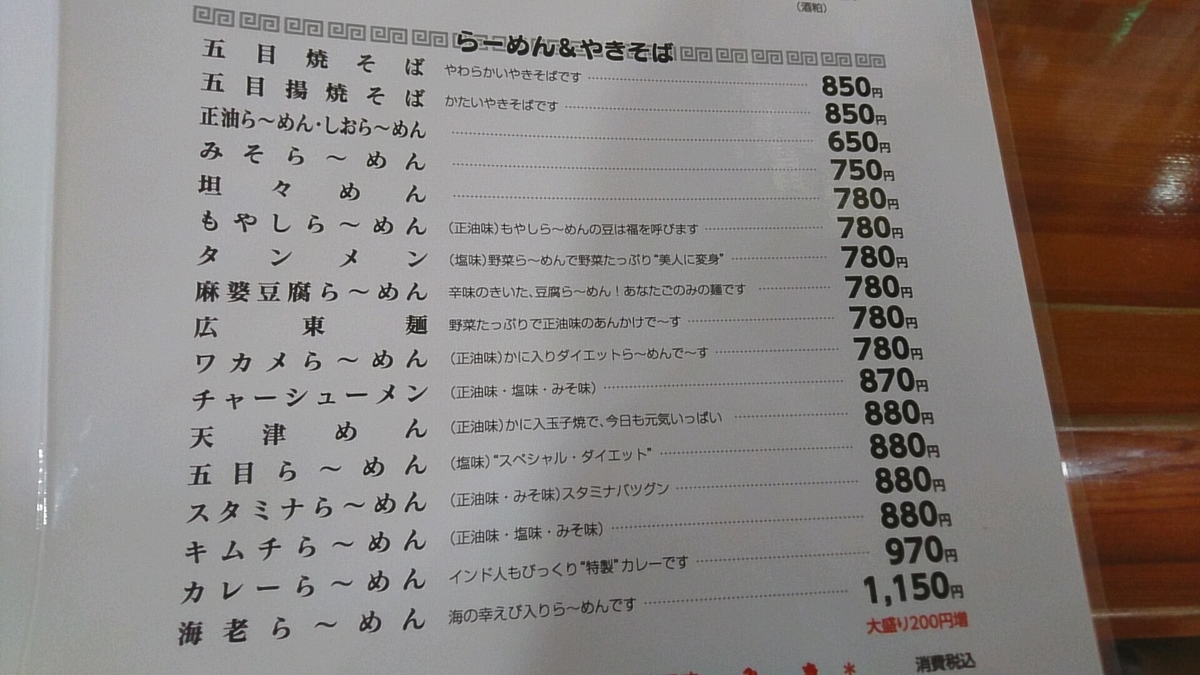 （酒粕）
らーめん&やきそば
五目焼そば やわらかいやきそばです 850円
五目揚焼そば かたいやきそばです 850円
正油ら～めん・しおら～めん 650円
みそら～めん 750円
坦々めん 780円
もやしら～めん （正油味）もやしら～めんの豆は福を呼びます 780円
タンメン （塩味）野菜ら～めんで野菜たっぷり“美人に変身” 780円
麻婆豆腐ら～めん 辛味のきいた、豆腐ら～めん！あなたごのみの麺です 780円
広東麺 野菜たっぷりで正油味のあんかけで～す 780円
ワカメら～めん （正油味）かに入りダイエットら～めんで～す 780円
チャーシューメン （正油味・塩味・みそ味） 870円
天津めん （正油味）かに入玉子焼で、今日も元気いっぱい 880円
五目ら～めん （塩味）“スペシャル・ダイエット” 880円
スタミナら～めん （正油味・みそ味）スタミナバツグン 880円
キムチら～めん （正油味・塩味・みそ味） 880円
カレーら～めん インド人もびっくり“特製”カレーです 970円
海老ら～めん 海の幸えび入りら～めんです 1,150円
大盛り200円増
消費税込